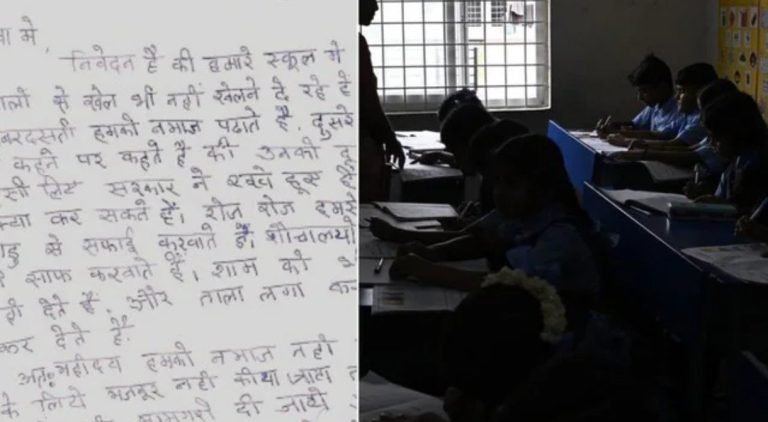 ा मे,
निवेदन है की हमारे स्कूल मे
से खेल भी नहीं खेलने दे रहे है
बरदसती हमको नमाज पढाते है. दुसरे
कहने पर कहते है की उनको
सरकार ने रखे हूस
क्या कर सकते हैं। रोज रोज हमसे
ाडु से सफाई करवाते है। शौचालयो
साफ करवाते हैं, शाम को
देते है. और ताला लगा
कर देते है.
अतः महोदय हमको नमाज नही
के लिये मजबूर नही कीया जाये
दी जाये